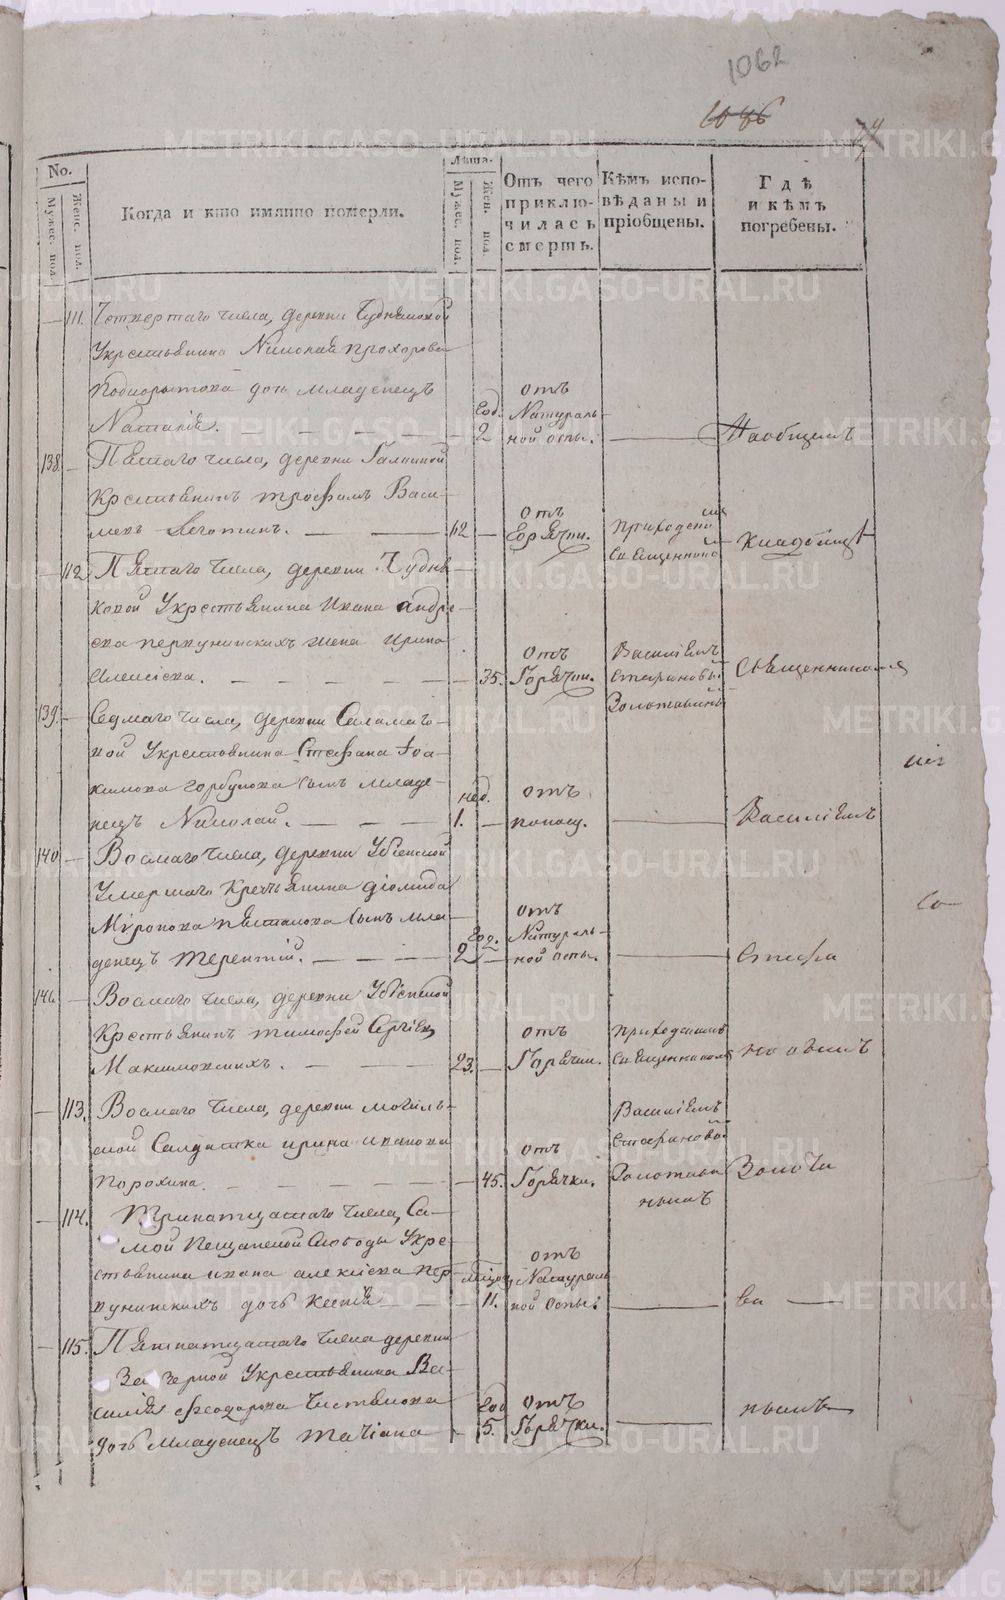 1062
No.
Мужес. пол.
Женс. пол.
Когда и кто имянно померли.
Лѣта.
Мужес. пол.
Жен. пол.
Отъ чего приключилась смерть.
Кѣмъ исповѣданы и пріобщены.
Гдѣ и кѣмъ погребены.
111. Четвертаго числа, деревни
Укрестьянина Николая Прохорова
дочь младенецъ
Наталія. Год. 2 отъ Натуральной оспы. На общемъ
138. Пятаго числа, деревни Галкиной
Крестьянинъ Трофимъ Василiевъ
62 отъ Горячки. Приходскимъ Священникомъ кладбищѣ
112. Пятаго числа, деревни
Укрестьянина Ивана Андреева
Первунинскихъ жена Ирина
Алексіева. 35. отъ Горячки. Василіемъ Стефановымъ Золотавинымъ Священникомъ
139. Седмаго числа, деревни Саламатовой
Укрестьянина Стефана Іоакимова
Горбунова сынъ младенецъ
Николай. нед. 1. отъ поносу. Василіемъ
140. Восмаго числа, деревни Убіенной
Умершаго Крестьянина Діомида
Миронова Пястолова сынъ младенецъ
Терентій. год. 2 отъ Натуральной оспы. Стефа
146. Восмаго числа, деревни Убіенной
Крестьянинъ Тимофей Сергіевъ
Максимовскихъ. 23. отъ Горячки. Приходскимъ Священникомъ новымъ
113. Восмаго числа, деревни Могильской
Салдатка Ирина Иванова
Порохина. 45. отъ Горячки. Василіемъ Стефановымъ Золотавинымъ Золота
114. Тринатцатаго числа, Самой
Пещанской Слободы Укрестьянина
Ивана Алексіева Первунинскихъ
дочь 11. отъ Натуральной оспы. ви
115. Пятнатцатаго числа деревни
Заречной Укрестьянина Василія
Феодорова
дочь младенецъ Татіана год 5. отъ Горячки. нымъ
METRIKI.GASO-URAL.RU